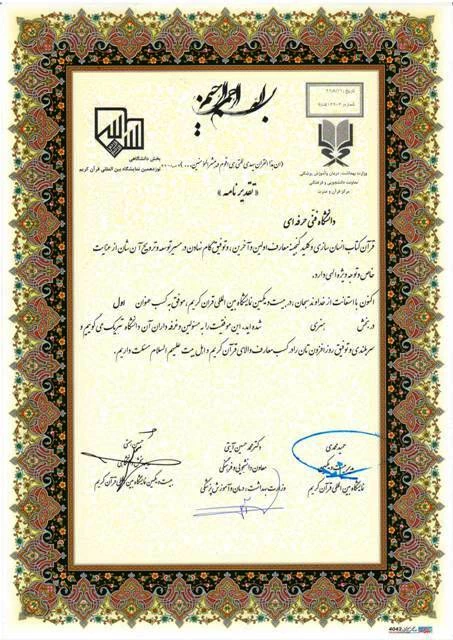 بسم الله الرحمن الرحیم
بخش دانشگاهی
نوزدهمین نمایشگاه بین المللی قرآن کریم
وزارت بهداشت، درمان و آموزش پزشکی
معاونت دانشجویی و فرهنگی
مرکز قرآن و عترت
« تقدیرنامه »
دانشگاه فنی حرفه ای
قرآن کتاب انسان سازی و کلید گنجینه معارف اولین و آخرین، و توفیق گام نهادن در مسیر توسعه و ترویج آن نشان از عنایت
خاص و توجه ویژه الهی دارد.
اکنون با استعانت از خداوند سبحان، در بیست و یکمین نمایشگاه بین المللی قرآن کریم، موفق به کسب عنوان اول
در بخش هنری شده اید. این موفقیت را به مسئولین و غرفه داران آن دانشگاه تبریک می گوییم و
سربلندی و توفیق روزافزون تان را در کسب معارف والای قرآن کریم و اهل بیت علیهم السلام مسئلت داریم.
حمید محمدی
نمایشگاه بین المللی قرآن کریم
دکتر محمد حسین آیتی
معاون دانشجویی و فرهنگی
وزارت بهداشت، درمان و آموزش پزشکی
بیست و یکمین نمایشگاه بین المللی قرآن کریم
4042